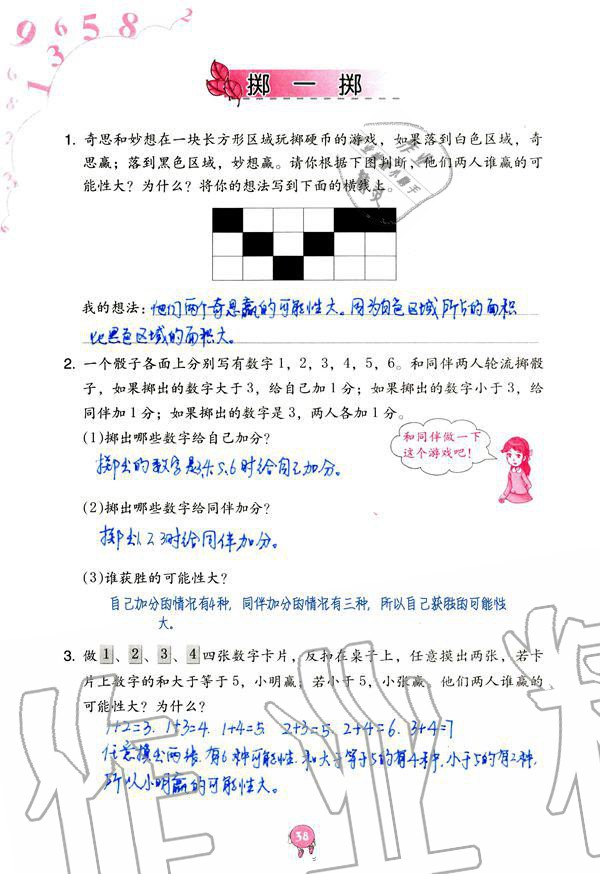 9 6 5 8 2
1 3
掷一掷
1. 奇思和妙想在一块长方形区域玩掷硬币的游戏，如果落到白色区域，奇
思赢；落到黑色区域，妙想赢。请你根据下图判断，他们两人谁赢的可
能性大？为什么？将你的想法写到下面的横线上。
我的想法：他们两个奇思赢的可能性大。因为白色区域所占的面积
比黑色区域的面积大。
2. 一个骰子各面上分别写有数字1，2，3，4，5，6。和同伴两人轮流掷骰
子，如果掷出的数字大于3，给自己加1分；如果掷出的数字小于3，给
同伴加1分；如果掷出的数字是3，两人各加1分。
(1)掷出哪些数字给自己加分？
和同伴做一下
这个游戏吧！
掷出的数字是3.4.5.6时给自己加分。
(2)掷出哪些数字给同伴加分？
掷出1.2.3时给同伴加分。
(3)谁获胜的可能性大？
自己加分的情况有4种，同伴加分的情况有三种，所以自己获胜的可能性
大。
3. 做1、2、3、4四张数字卡片，反扣在桌子上，任意摸出两张，若卡
片上数字的和大于等于5，小明赢；若小于5，小张赢。他们两人谁赢的
可能性大？为什么？
1+2=3. 1+3=4. 1+4=5. 2+3=5. 2+4=6. 3+4=7
任意摸出两张，有6种可能性，和大于等于5的有4种，小于5的有2种，
所以小明赢的可能性大。
38
作业精